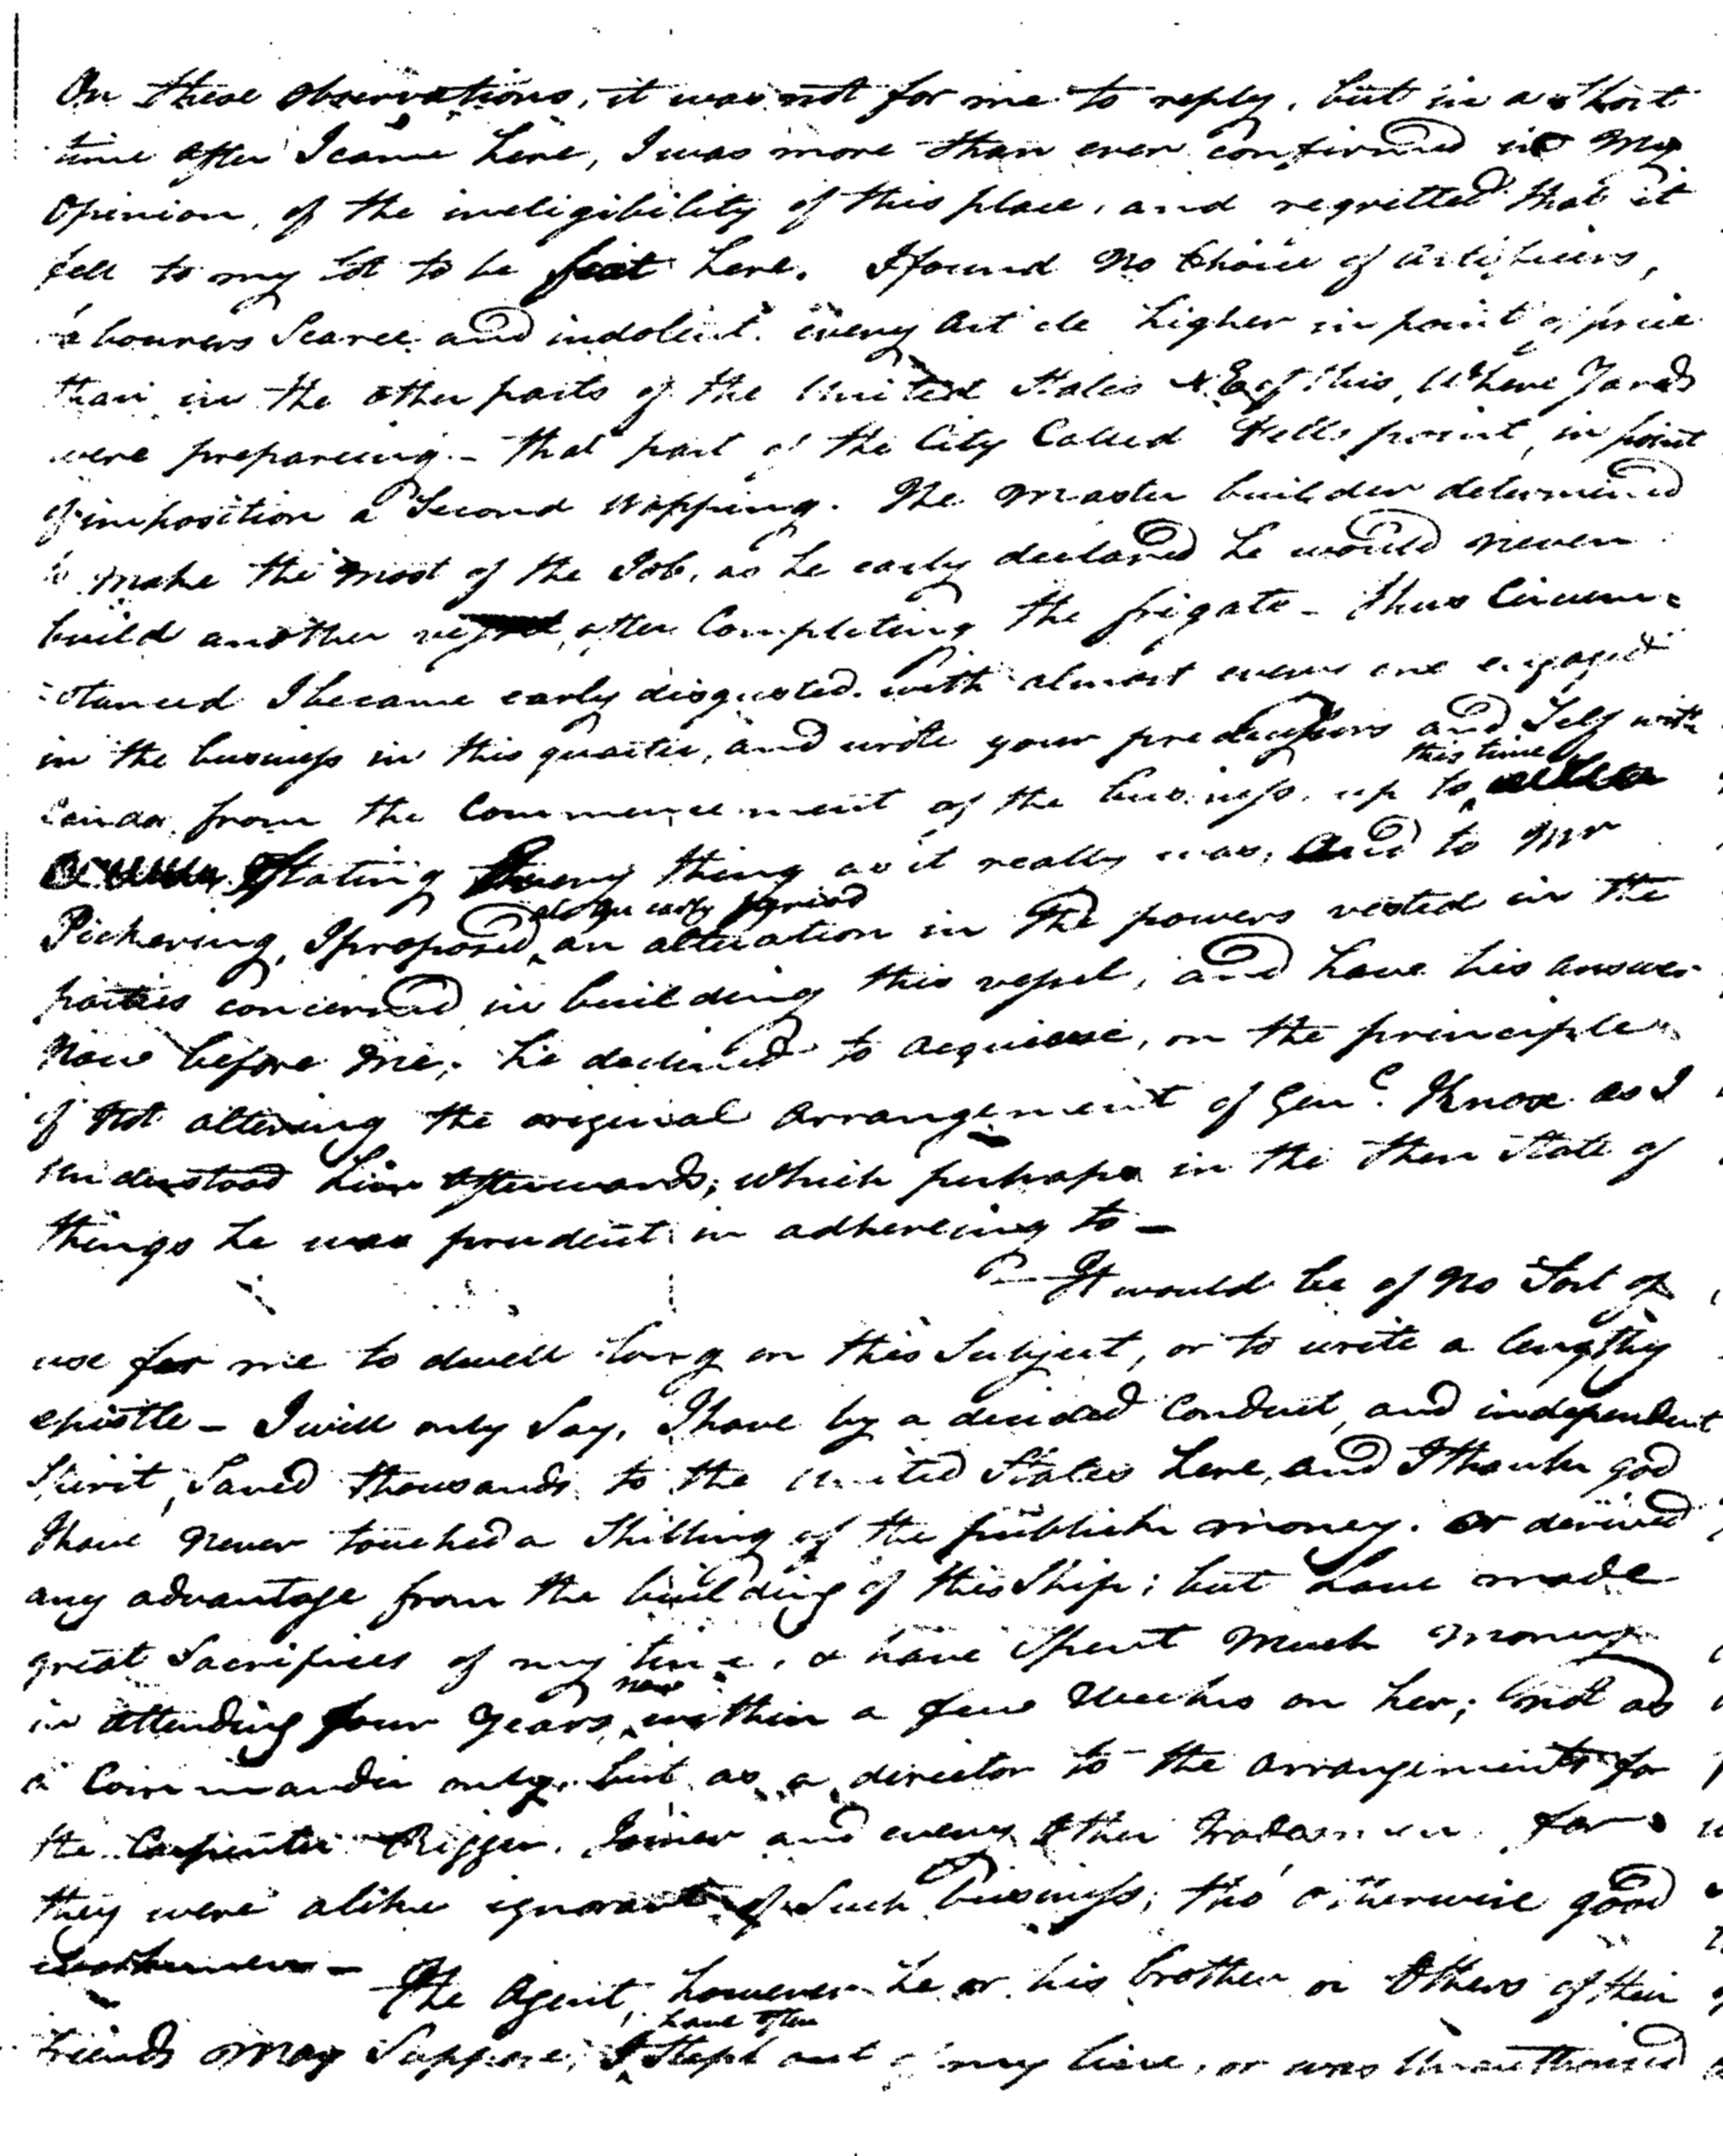 On these observations, it was not for me to reply, but in a short
time after I came here, I was more than ever confirmed in my
Opinion, of the ineligibility of this place, and regretted that it
fell to my lot to be sent here. I found no Choice of artificers,
labourers Scarce and indolent. every Article higher in point of price
than in the other parts of the United States N.E of this, Where Yards
were prepareing. - that part of the City Called Fells point, in point
of imposition a Second Wapping. The Master builder determined
to make the most of the Job, as he early declared he would never
build another vessel, after Compleating the frigate - thus Circum=
=stanced I became early disgusted with almost every one engaged
in the business in this quarter, and wrote your predecessors and Self with
this time
Candor from the Commencement of the business, up to
Stating Every thing as it really was, and to Mr
at an early period
Pickering, I proposed an alteration in the powers vested in the
parties concerned in building this vessel, and have his answer
Now before me; he declined to acquiesce, on the principle
of Not altering the original arrangement of Genl. Knox as I
understood him afterwards; which perhaps in the then State of
things he was prudent in adhereing to -
It would be of no Sort of
use for me to dwell long on this Subject, or to write a lengthy
epistle - I will only Say, I have by a decided Conduct, and independent
Spirit, Saved thousands to the United States here, and I thank god
I have never touched a Shilling of the publick money. or derived
any advantage from the building of this Ship; but have made
great Sacrifices of my time, & have Spent Much money
now
in attending four Years within a few Weeks on her; not as
a Commander only, but as a director to the arrangements for
the Carpenter Rigger, Joiner and every Other tradesman for
they were alike ignorant of Such business, tho' otherwise good
workmen -
The Agent, however he or his brother or Others of their
have often
friends may Suppose, I Stept out of my line, or was Unauthorised